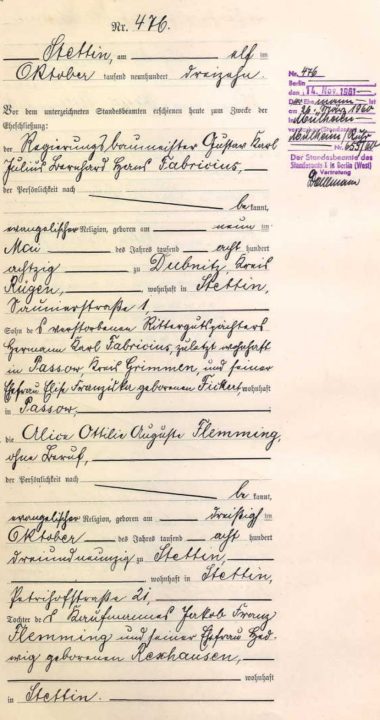 Nr. 476.
Stettin, am elf ten
Oktober tausend neunhundert dreizehn.
Vor dem unterzeichneten Standesbeamten erschienen heute zum Zwecke der
Eheschließung:
der Regierungsbaumeister Gustav Karl
Julius Bernhard Hans Fabricius,
der Persönlichkeit nach
be kannt,
evangelischer Religion, geboren am neun ten
Mai des Jahres tausend acht hundert
achtzig zu Dubnitz, Kreis
Rügen, wohnhaft in Stettin,
Saunierstraße 1,
Sohn des verstorbenen Rittergutspächters
Hermann Karl Fabricius, zuletzt wohnhaft
in Passow, Kreis Grimmen, und seiner
Ehefrau Elise Franziska geborenen Fickert wohnhaft
in Passow,
die Alice Ottilie Auguste Flemming,
ohne Beruf,
der Persönlichkeit nach
be kannt,
evangelischer Religion, geboren am dreißigsten
Oktober des Jahres tausend acht hundert
dreiundneunzig zu Stettin,
wohnhaft in Stettin,
Petrihofstraße 21,
Tochter des Kaufmannes Jakob Franz
Flemming und seiner Ehefrau Hed-
wig geborenen Rexhausen,
wohnhaft
in Stettin.
No. 476
Berlin
den 14. Nov. 1961
Der Ehemann ist
am 26. März 1960
in Mülheim
Mülheim/Ruhr
Nr.
Der Standesbeamte des
Standesamts I in Berlin (West)
Vertretung